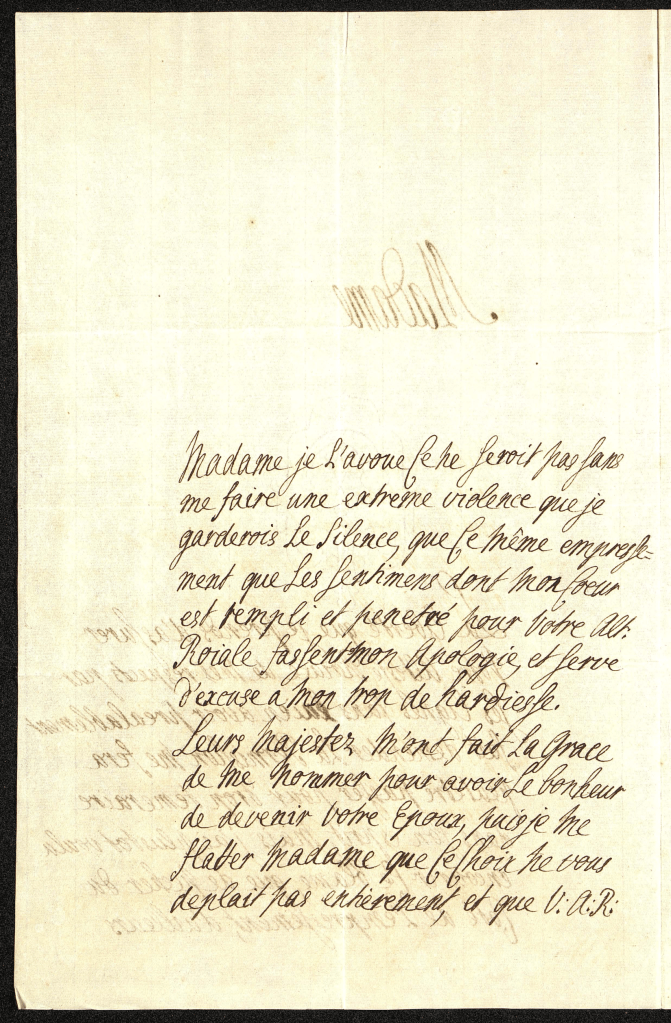 Madame
Madame je L'avoue Ce ne seroit pas sans
me faire une extreme violence que je
garderois Le Silence, que Ce même empresse-
ment que Les sentimens dont mon Coeur
est rempli et penetré pour Votre Alt:
Roiale fassent mon Apologie, et serve
d'excuse a mon trop de hardiesse.
Leurs Majestez m'ont fait La Grace
de me nommer pour avoir Le bonheur
de devenir Votre Epoux, puis je me
flatter Madame que Ce Choix ne vous
deplait pas entierement, et que V: A: R: